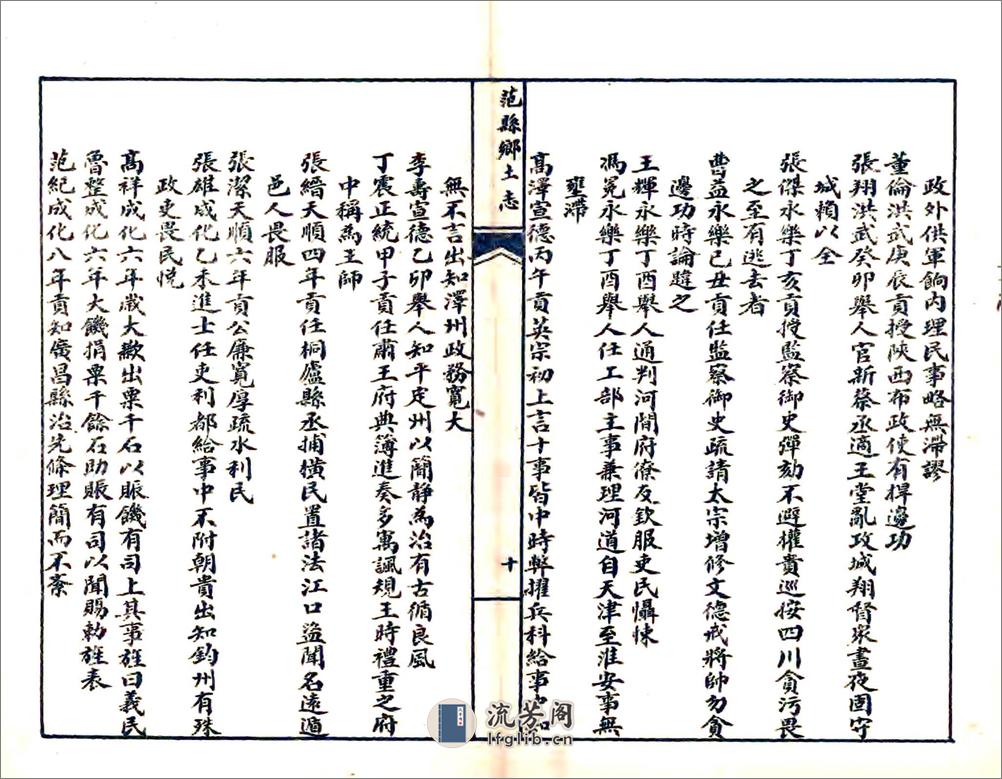 政外供軍餉内理民事略無滯謬
董倫洪武庚辰貢授陝西布政使有捍邊功
張翔洪武癸卯舉人官新蔡丞適王堂亂攻城翔督衆晝夜固守
城賴以全
張傑永樂丁亥貢授監察御史彈劾不避權貴巡按四川貪污畏
之至有逃去者
曹益永樂己丑貢任監察御史疏請太宗增修文德戒將帥勿貪
邊功時論韙之
王輝永樂丁酉舉人通判河間府僚友欽服吏民懾悚
馮冕永樂丁酉舉人任工部主事兼理河道自天津至淮安事無
壅滯
高澤宣德丙午貢英宗初上言十事皆中時弊擢兵科給事中知
范縣鄉土志
十
無不言出知澤州政務寬大
李壽宣德乙卯舉人知平定州以簡静為治有古循良風
丁震正統甲子貢任肅王府典簿進奏多寓諷規王時禮重之府
中稱為王師
張縉天順四年貢任桐廬縣丞捕橫民置諸法江口盜聞名遠遁
邑人畏服
張潔天順六年貢公廉寬厚疏水利民
張雄成化乙未進士任吏利都給事中不附朝貴出知鈞州有殊
政吏畏民悅
高祥成化六年歲大歉出粟千石以賑饑有司上其事旌曰義民
魯整成化六年大饑捐粟千餘石助賑有司以聞賜勅旌表
范紀成化八年貢知廣昌縣治先條理簡而不紊
流芳阁
lfglib.cn